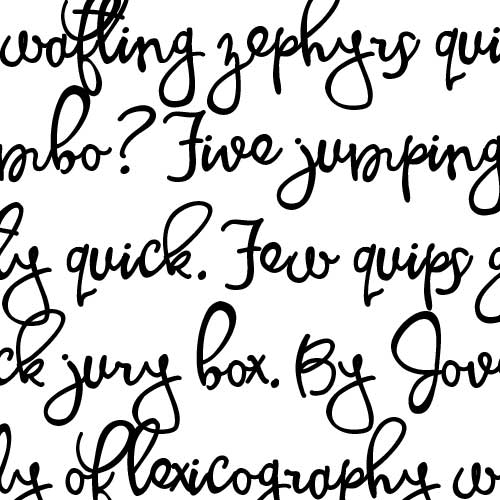 wafting zephyrs qui
mbo? Five jumping
ly quick. Few quips
ck jury box. By Jove
ly of lexicography w